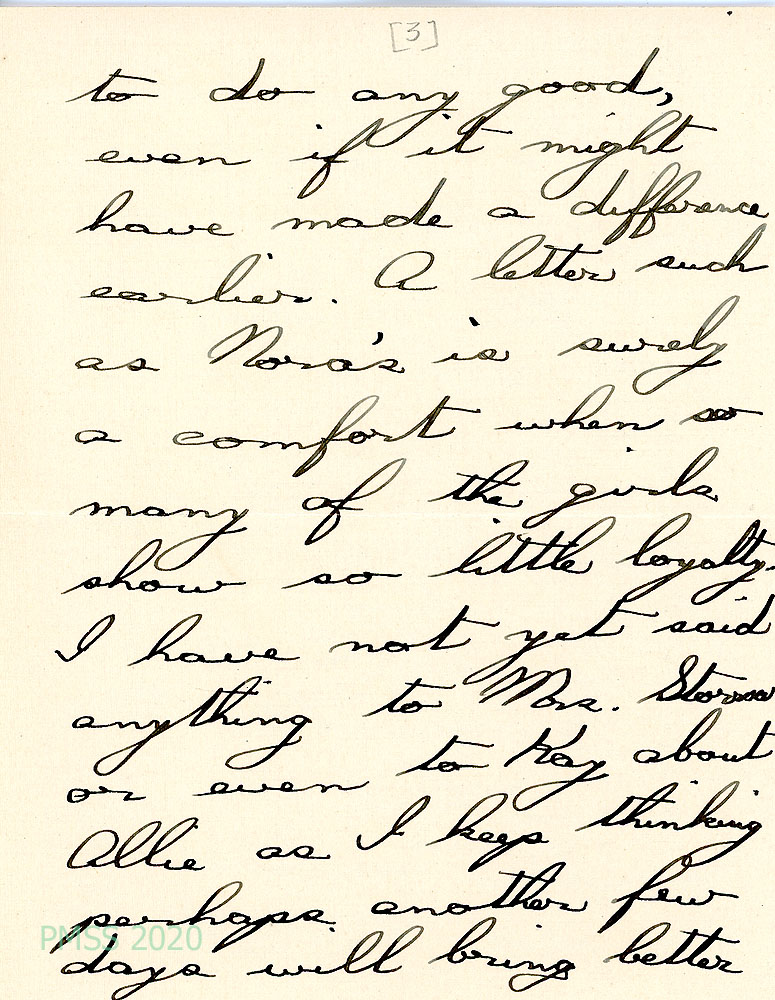 [3]
to do any good,
even if it might
have made a difference
earlier. A letter such
as Nora's is surely
a comfort when so
many of the girls
show so little loyalty.
I have not yet said
anything to Mrs. Storm
or even to Kay about
Allie as I keep thinking
perhaps another few
days will bring better
PMSS 2020